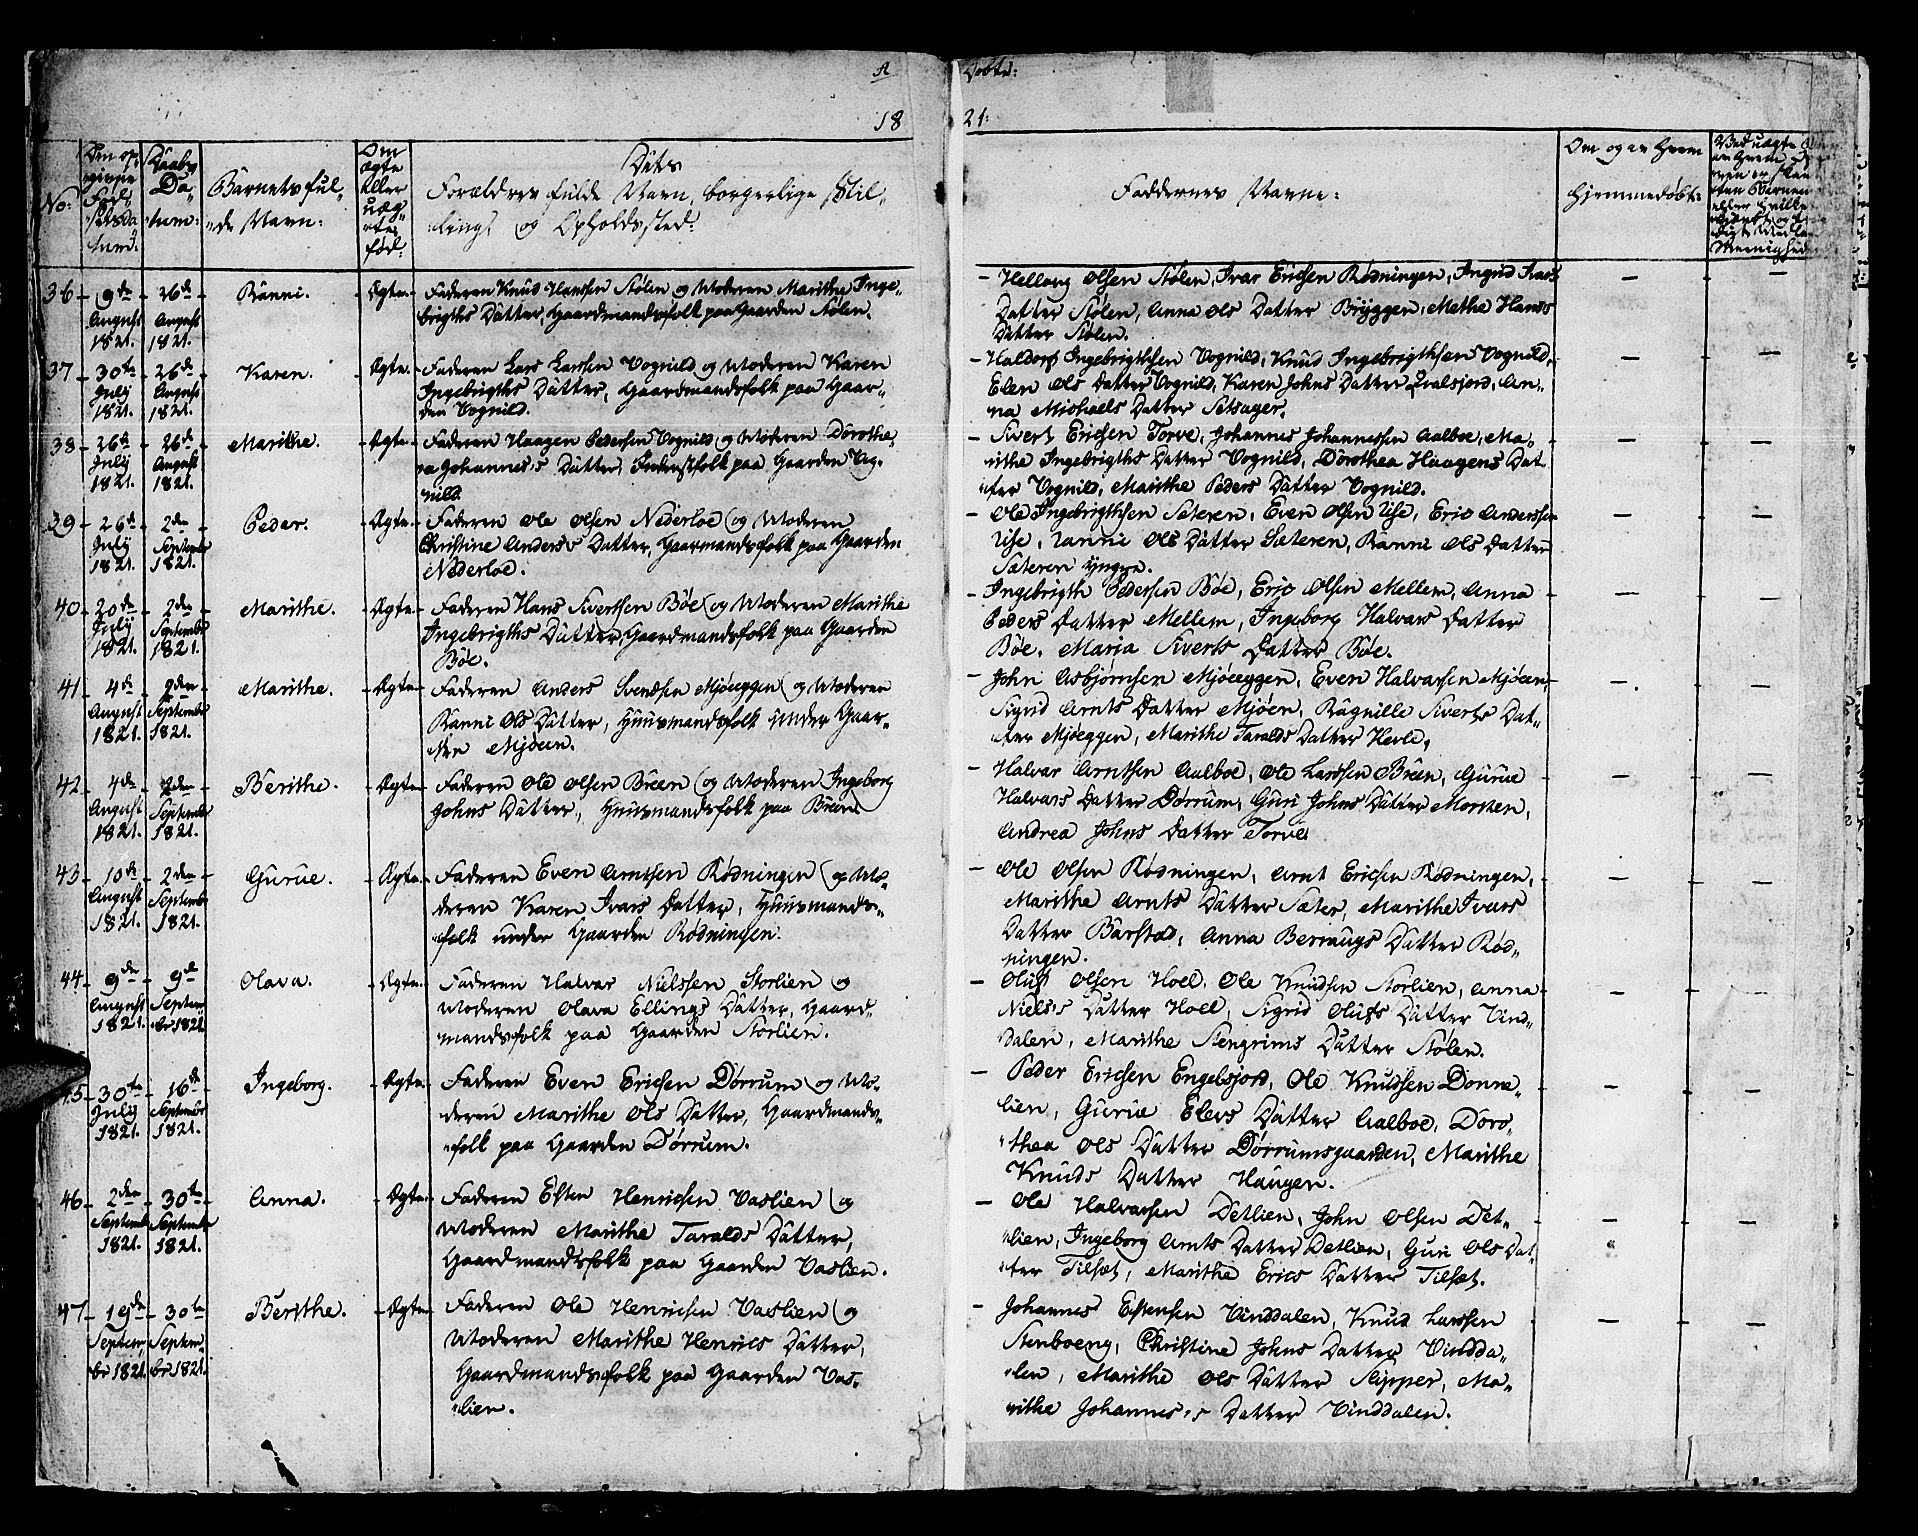 A
18
Døbte:
21:
No:
Den op-
givne
Føds
selsda
tum:
Daabs
Da-
tum:
Barnets ful-
de Navn:
Om
ægte
eller
uæg-
te
fød:
Dets
Forældres fulde Navn, borgerlige Stil-
ling og Opholdssted:
Faddernes Navne:
Om og av hvem
hjemmedøbt:
36 9de August 1821. 26de August 1821. Ranni. Ægte.
Faderen Knud Hanssen Stølen og Moderen Marithe Inge-
brigths Datter, Gaardmandsfolk paa Gaarden Stølen.
Hellvig Olsen Stølen, Ivar Ericsen Rødningen, Ingrid Ivars
Datter Stølen, Anna Ols Datter Bryggen, Methe Hans
Datter Stølen.
37 30te July 1821. 26de August 1821. Karen. Ægte.
Faderen Lars Larssen Vognild og Moderen Karen
Ingebrigths Datter, Gaardmandsfolk paa Gaar-
den Vognild.
Haldor Ingebrigthsen Vognild, Knud Ingebrigthsen Vognild,
Elen Ols Datter Vognild, Karen Johns Datter Qvalsjord, An-
na Michaels Datter Setsager.
38 26de July 1821. 26de August 1821. Marithe. Ægte.
Faderen Haagen Pedersen Vognild og Moderen Dorothe-
a Johannes's Datter, Inderstfolk paa Gaarden Vog-
nild.
Sivert Ericsen Torve, Johannes Johannessen Aalboe, Ma-
rithe Ingebrigths Datter Vognild, Dorothea Haagens Dat-
ter Vognild, Marithe Peders Datter Vognild.
39 26de July 1821. 2den September 1821. Peder. Ægte.
Faderen Ole Olsen Nederloe og Moderen
Christine Anders's Datter, Gaarmandsfolk paa Gaarden
Nederloe.
Ole Ingebrigthsen Sæteren, Even Olsen Use, Eric Anderssen
Use, Ranni Ols Datter Sæteren, Ranni Ols Datter
Sæteren yngre.
40 20de July 1821. 2den September 1821. Marithe. Ægte.
Faderen Hans Sivertsen Böe og Moderen Marithe
Ingebrigths Datter, Gaardmandsfolk paa Gaarden
Böe.
Ingebrigth Pedersen Böe, Eric Olsen Mellem, Anna
Peders Datter Mellem, Ingeborg Halvars Datter
Böe, Maria Siverts Datter Böe.
41 4de August 1821. 2den September 1821. Marithe. Ægte.
Faderen Anders Svendsen Mjöeggen og Moderen
Ranni Ols Datter, Huusmandsfolk under Gaar-
den Mjöen.
John Asbjørnsen Mjöeggen, Even Halvarsen Mjöen,
Sigrid Arnts Datter Mjöen, Ragnille Siverts Dat-
ter Mjöeggen, Marithe Taralds Datter Hevle.
42 4de August 1821. 2den September 1821. Berithe. Ægte.
Faderen Ole Olsen Breen og Moderen Ingeborg
Johns Datter, Huusmandsfolk paa Breen
Halvar Arntsen Aalboe, Ole Larssen Breen, Gurue
Halvars Datter Dørrum, Guri Johns Datter Morken,
Andrea Johns Datter Torve
43 10de August 1821. 2den September 1821. Gurue. Ægte.
Faderen Even Arntsen Rødningen og Mo-
deren Karen Ivars Datter, Huusmands-
folk under Gaarden Rødningen.
Ole Olsen Rødningen, Arnt Ericsen Rødningen,
Marithe Arnts Datter Sæter, Marithe Ivars
Datter Barstad, Anna Bernhugs Datter Rød-
ningen.
44 9de August 1821. 9de September 1821. Olava. Ægte.
Faderen Halvar Nielssen Storlien og
Moderen Olava Ellings Datter, Gaard-
mandsfolk paa Gaarden Storlien.
Oluf Olsen Hoel, Ole Knudsen Storlien, Anna
Niels's Datter Hoel, Sigrid Olufs Datter Vind-
dalen, Marithe Stengrims Datter Stølen.
45 30te July 1821. 16de September 1821. Ingeborg. Ægte.
Faderen Even Ericsen Dørrum og Mo-
deren Marithe Ols Datter, Gaardmands-
folk paa Gaarden Dørrum.
Peder Ericsen Engelsjord, Ole Knudsen Donne-
lien, Gurue Elevs Datter Aalboe, Doro-
thea Ols Datter Dørrumsgaarden, Marithe
Knuds Datter Haugen.
46 2den September 1821. 30te September 1821. Anna. Ægte.
Faderen Esten Henricsen Vaslien og
Moderen Marithe Taralds Datter,
Gaardmandsfolk paa Gaarden Vaslien.
Ole Halvarsen Detlien, John Olsen Det-
lien, Ingeborg Arnts Datter Detlien, Guri Ols Dat-
ter Tilset, Marithe Erics Datter Tilset.
47 19de September 1821. 30te September 1821. Berithe. Ægte.
Faderen Ole Henricsen Vaslien og
Moderen Marithe Henrics Datter,
Gaardmandsfolk paa Gaarden Vas-
lien.
Johannes Estensen Vinddalen, Knud Larssen
Stenboeng, Christine Johns Datter Vindda-
len, Marithe Ols Datter Slipper, Ma-
rithe Johannes's Datter Vinddalen.